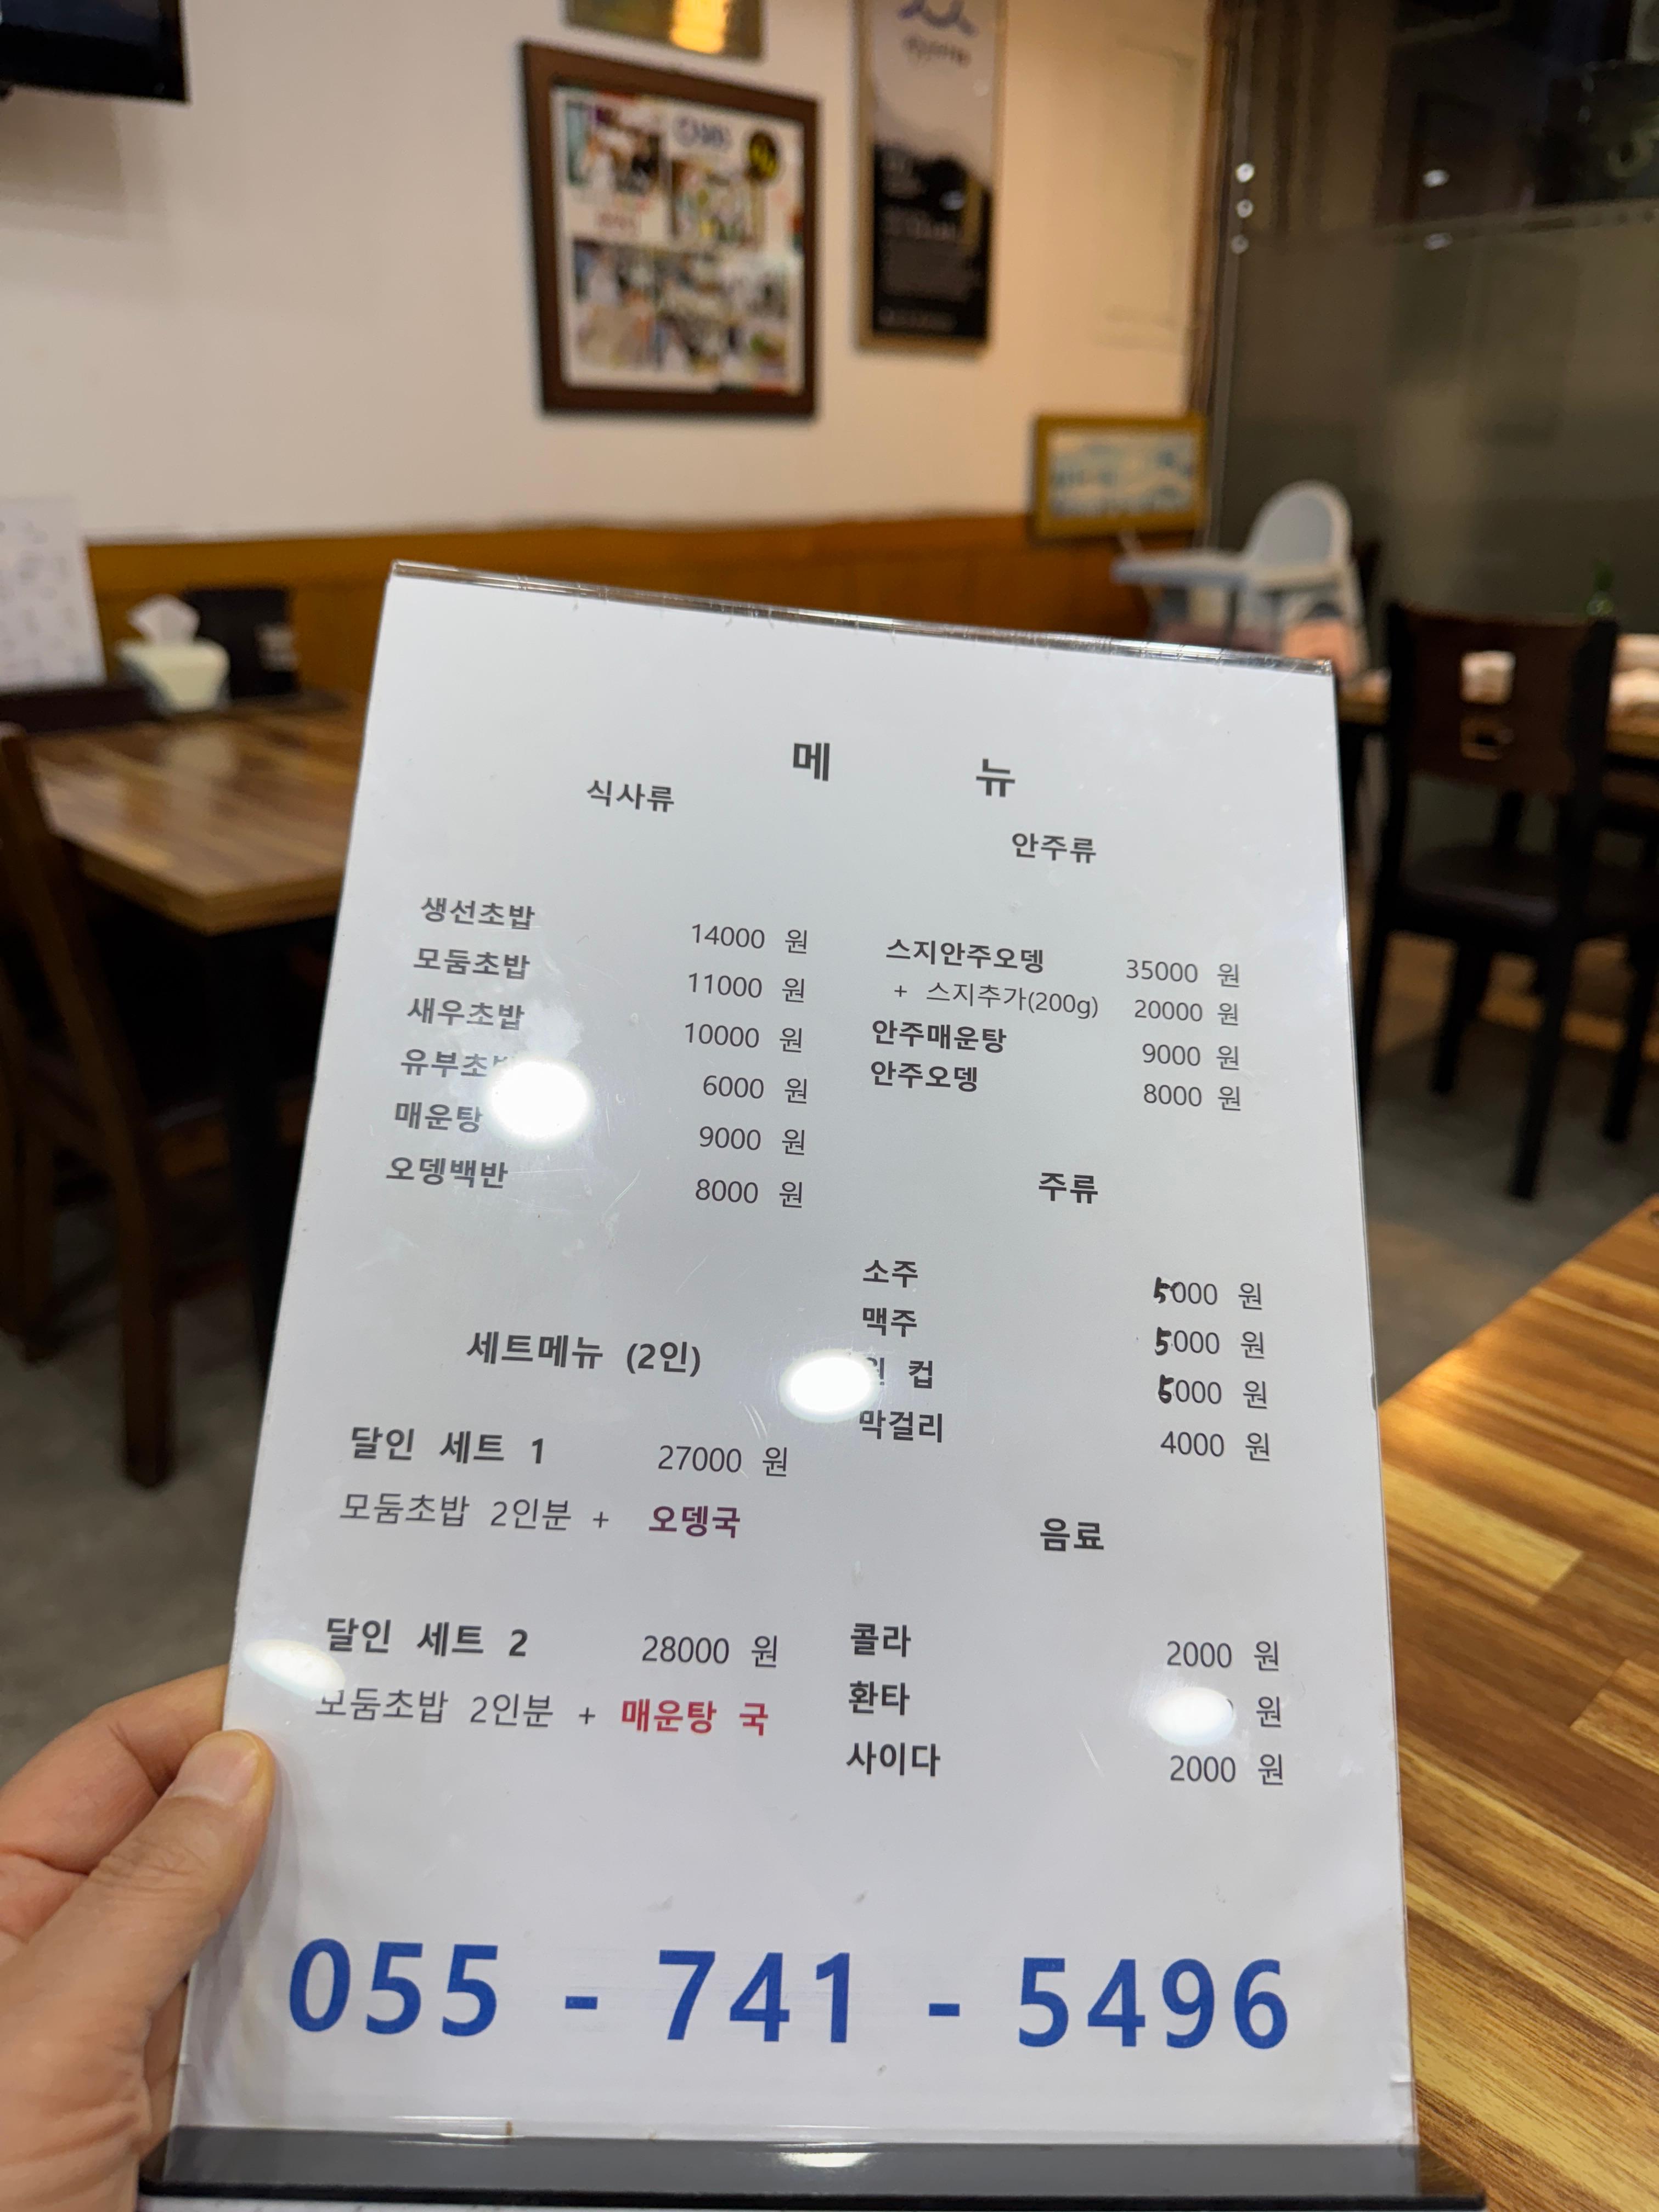 메 뉴
식사류
생선초밥 14000 원
모둠초밥 11000 원
새우초밥 10000 원
6000 원
매운탕 9000 원
오뎅백반 8000 원
세트메뉴 (2인)
달인 세트 1 27000 원
모둠초밥 2인분 + 오뎅국
달인 세트 2 28000 원
모둠초밥 2인분 + 매운탕 국
안주류
스지안주오뎅 35000 원
+ 스지추가(200g) 20000 원
안주매운탕 9000 원
안주오뎅 8000 원
주류
소주 5000 원
맥주 5000 원
컵 5000 원
막걸리 4000 원
음료
콜라 2000 원
환타 원
사이다 2000 원
055 - 741 - 5496